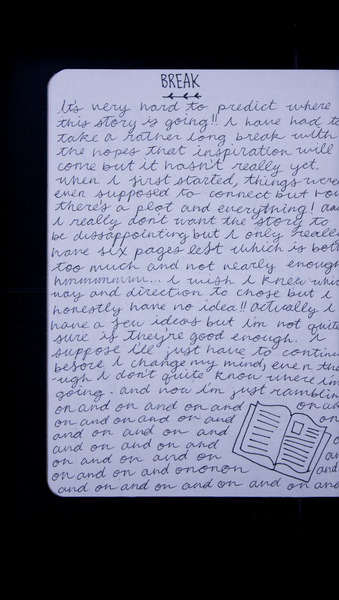 BREAK
It's very hard to predict where
this story is going!! I have had to
take a rather long break with
the hopes that inspiration will
come but it hasn't really yet.
When I first started, things were
even supposed to connect but
there's a plot and everything!
I really don't want the story to
be dissappointing but I only really
have six pages left which is both
too much and not nearly enough
hmmmmm... I wish I knew
way and direction to chose but I
honestly have no idea!! Actually I
have a few ideas but I'm not quite
sure is they're good enough. I
suppose I'll just have to
before I change my mind, even
ugh I don't quite know where I'm
going. and now I'm just
on and on and on and on and
on and on and on and on and
on and on and on and
on and on and on and
on and on and on and
on and on and on
on and on and ononon
and on and on and on and on and
on